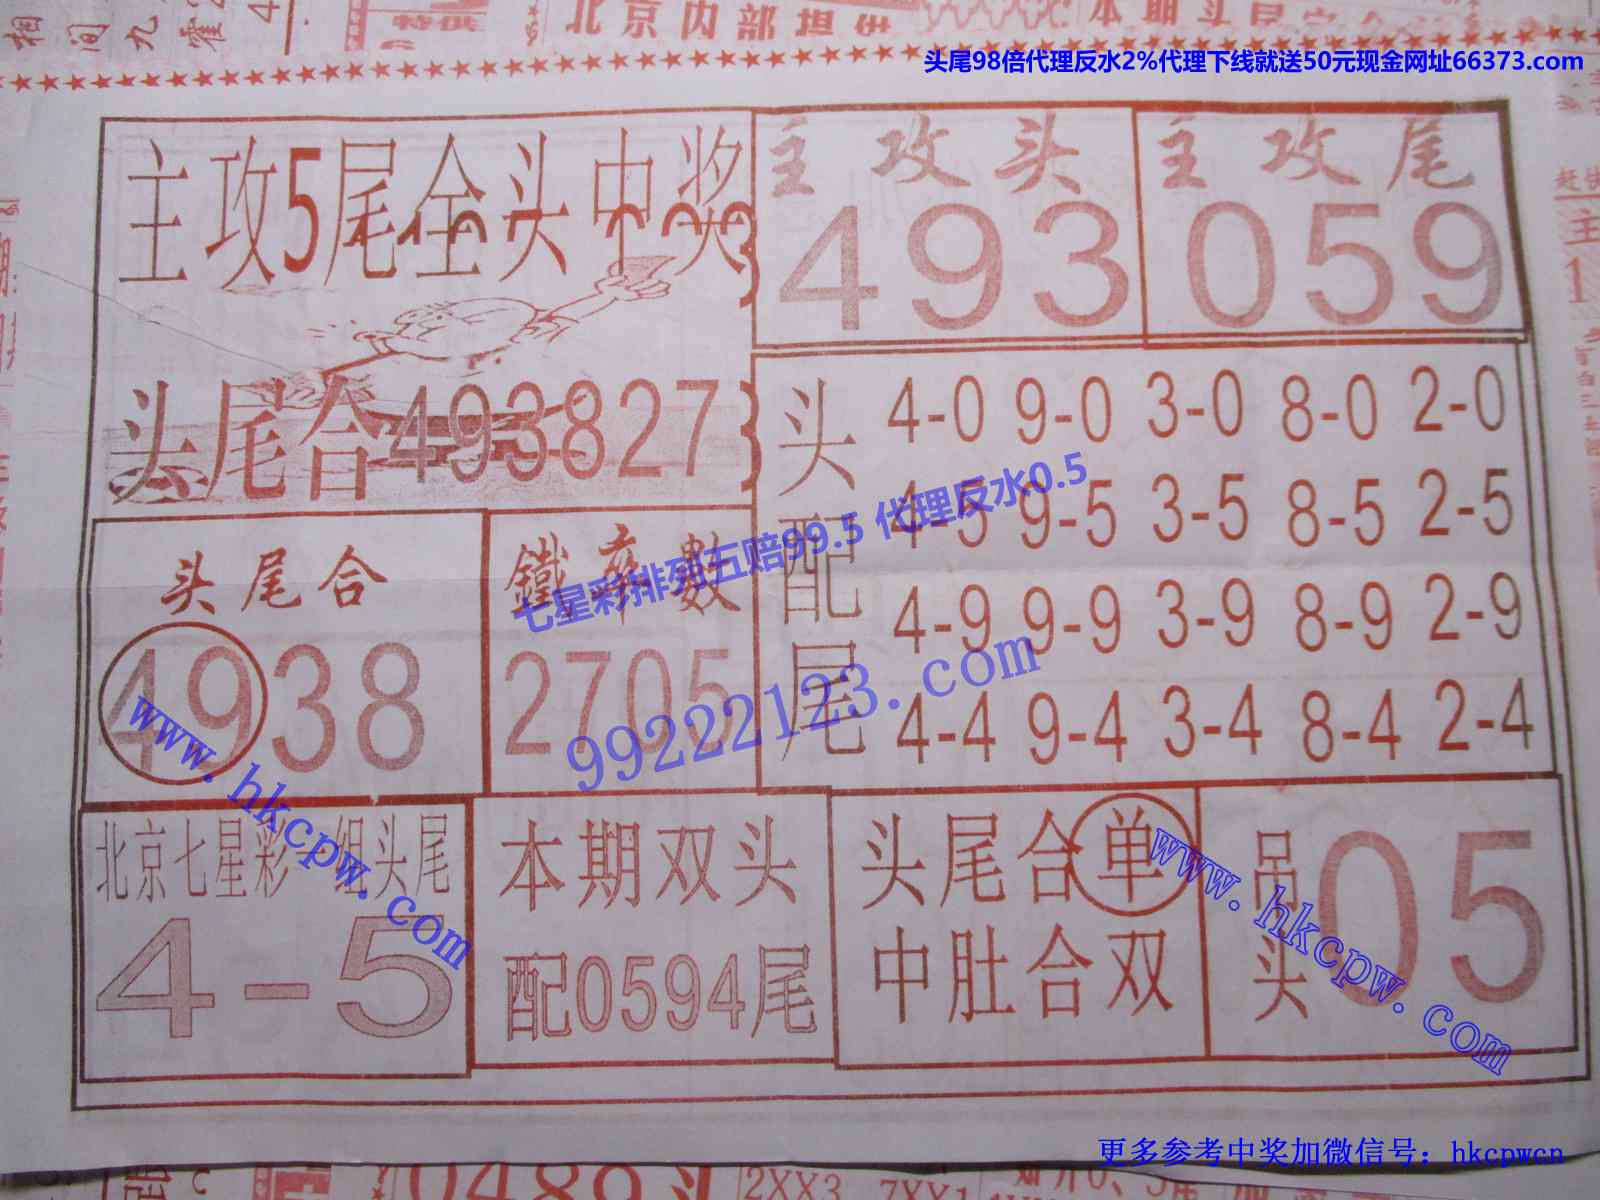 相间九霍
特供
北京内部提供
头尾98倍代理反水2%代理下线就送50元现金网址66373.com
主攻5尾全头中奖
主攻头
493
主攻尾
059
头尾合493827
头配尾
4-0 9-0 3-0 8-0 2-0
4-5 9-5 3-5 8-5 2-5
4-9 9-9 3-9 8-9 2-9
4-4 9-4 3-4 8-4 2-4
头尾合
4938
鐵率數
2705
七星彩排列五赔99.5 代理反水0.5
99222123.com
www.hkcpw.com
北京七星彩一组头尾
4-5
本期双头
配0594尾
头尾合单
中肚合双
吊头
05
www.hkcpw.com
更多参考中奖加微信号：hkcpwcn
0489头
2XX3
7XX1